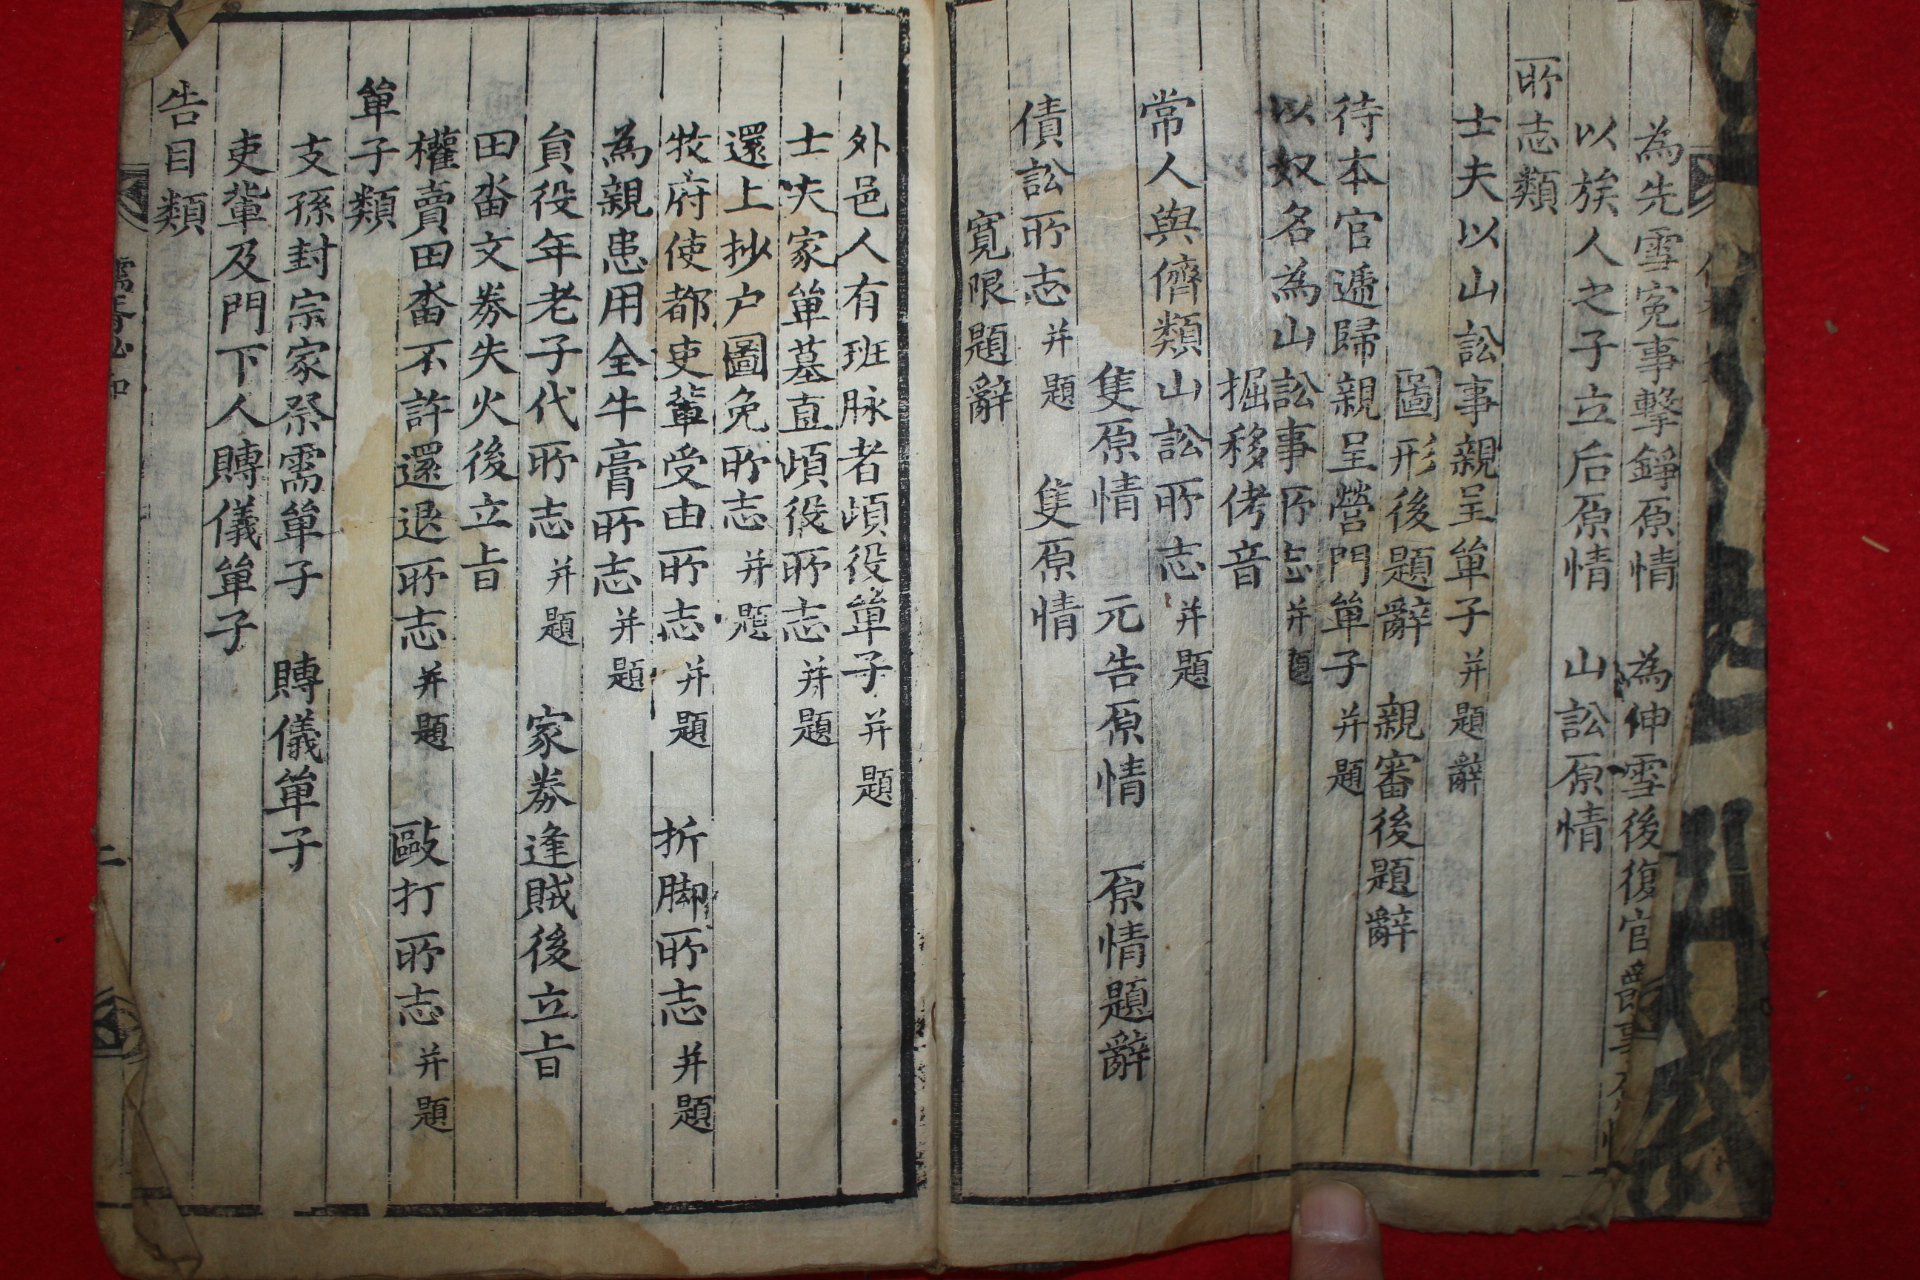 為先雪寃事擊錚原情　為伸雪後復官爵事原情
以族人之子立后原情　山訟原情
所志類
士夫以山訟事親呈單子并題辭
圖形後題辭　親審後題辭
待本官遞歸親呈營門單子并題
以奴名為山訟事所志并題
掘移侤音
常人與儕類山訟所志并題
隻原情　元告原情　原情題辭
債訟所志并題　隻原情
寬限題辭
外邑人有班脉者頉役單子并題
士夫家單墓直頉役所志并題
還上抄户圖免所志并題
牧府使都吏輩受由所志并題　折脚所志并題
為親患用全牛膏所志并題
貟役年老子代所志并題　家券逢賊後立旨
田畓文券失火後立旨
權賣田畓不許還退所志并題　毆打所志并題
單子類
支孫封宗家祭需單子　賻儀單子
吏輩及門下人賻儀單子
告目類
儒胥必知
二